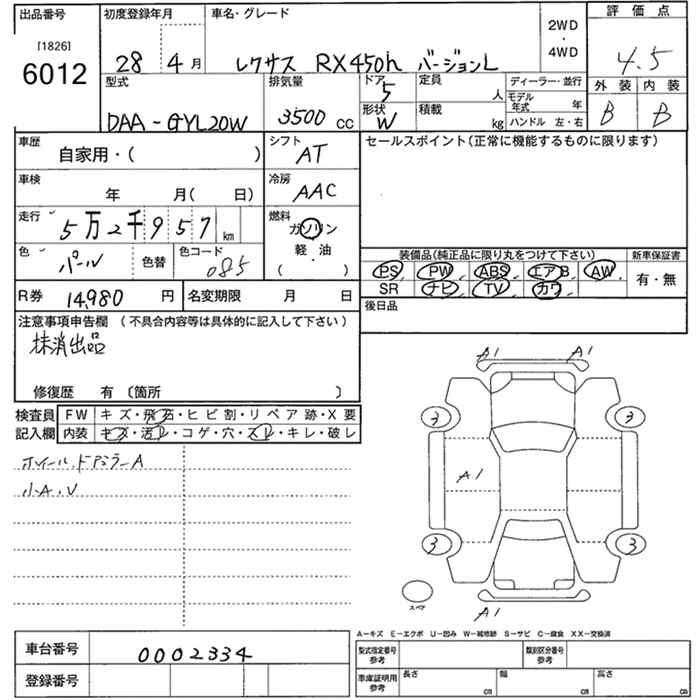 出品番号
[1826]
6012
初度登録年月
28 4月
車名・グレード
レクサス RX450h バージョンL
2WD
・
4WD
評価点
4.5
外装 内装
B B
型式
DAA-GYL20W
排気量
3500 cc
ドア
5
形状
W
定員
人
積載
kg
ディーラー・並行
モデル
年式 年
ハンドル 左・右
車歴
自家用・( )
シフト
AT
セールスポイント(正常に機能するものに限ります)
車検
年 月( 日)
冷房
AAC
走行
5万2千957 km
燃料
ガソリン
・
軽 油
( )
色
パール
色替
色コード
085
装備品(純正品に限り丸をつけて下さい)
PS PW ABS エアB AW
SR ナビ TV カワ
新車保証書
有・無
R券 14,980 円
名変期限 月 日
後日品
注意事項申告欄 (不具合内容等は具体的に記入して下さい)
抹消出品
修復歴 有〔箇所 〕
検査員
記入欄
FW キズ・飛石・ヒビ割・リペア跡・X要
内装 キズ・汚レ・コゲ・穴・スレ・キレ・破レ
ホイール、ドアミラーA
小A、U
A1 A1
3 3
A1
3 3
スペア
A1
車台番号 0002334
登録番号
A-キズ E-エクボ U-凹み W-補修跡 S-サビ C-腐食 XX-交換済
型式指定番号
参考
類別区分番号
参考
車庫証明用
参考
長さ cm
幅 cm
高さ cm